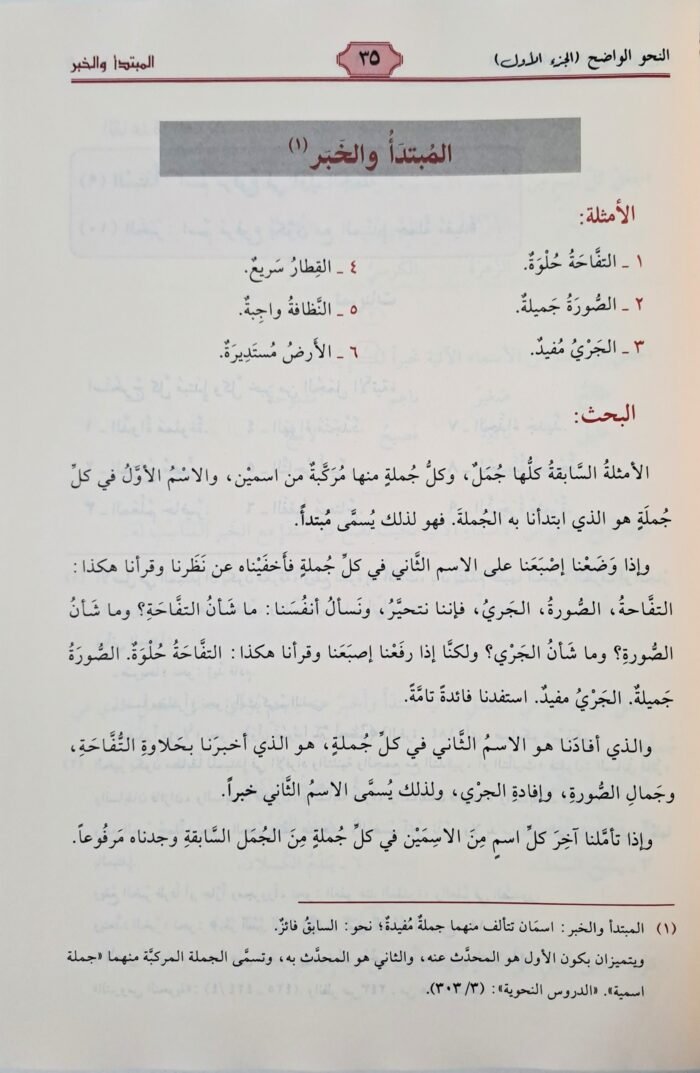 النحو الواضح (الجزء الأول)
٣٥
المبتدأ والخبر
المُبتدَأُ والخَبَر (١)
الأمثلة:
١ ـ التفَّاحَةُ حُلْوَةٌ.
٤ ـ القِطارُ سَريعٌ.
٢ ـ الصُّورَةُ جَميلةٌ.
٥ ـ النَّظافةُ واجِبةٌ.
٣ ـ الجَرْيُ مُفيدٌ.
٦ ـ الأَرضُ مُستَدِيرَةٌ.
البحث:
الأمثلةُ السَّابقةُ كلُّها جُمَلٌ، وكلُّ جُملةٍ منها مُرَكَّبةٌ من اسميْن، والاسْمُ الأوَّلُ في كلِّ
جُملَةٍ هو الذي ابتدأنا به الجُملةَ. فهو لذلك يُسمَّى مُبتدأً.
وإذا وَضَعْنا إصْبَعَنا على الاسم الثَّاني في كلِّ جُملةٍ فأخفَيْناه عن نَظَرنا وقرأنا هكذا:
التفَّاحةُ، الصُّورةُ، الجَريُ، فإننا نتحيَّرُ، ونَسألُ أنفُسَنا: ما شَأنُ التفَّاحَةِ؟ وما شَأنُ
الصُّورةِ؟ وما شَأنُ الجَرْي؟ ولكنَّا إذا رفَعْنا إصبَعَنا وقرأنا هكذا: التفَّاحَةُ حُلْوَةٌ. الصُّورَةُ
جَميلةٌ. الجَرْيُ مفيدٌ. استفدنا فائدةً تامَّةً.
والذي أفادَنا هو الاسمُ الثَّاني في كلِّ جُملةٍ، هو الذي أخبرَنا بحَلاوةِ التُّفَّاحَةِ،
وجَمالِ الصُّورةِ، وإفادةِ الجرْي، ولذلك يُسمَّى الاسمُ الثَّاني خبراً.
وإذا تأمَّلنا آخِرَ كلِّ اسمٍ مِنَ الاسِمَيْن في كلِّ جُملةٍ مِنَ الجُمَل السَّابقةِ وجدناه مَرفُوعاً.
(١) المبتدأ والخبر: اسمَان تتألف منهما جملةٌ مُفيدةٌ؛ نحو: السابقُ فائزٌ.
ويتميزان بكون الأول هو المحدَّث عنه، والثاني هو المحدَّث به، وتسمَّى الجملة المركبَّة منهما «جملة
اسمية». «الدروس النحوية»: (٣/ ٣٠٣).